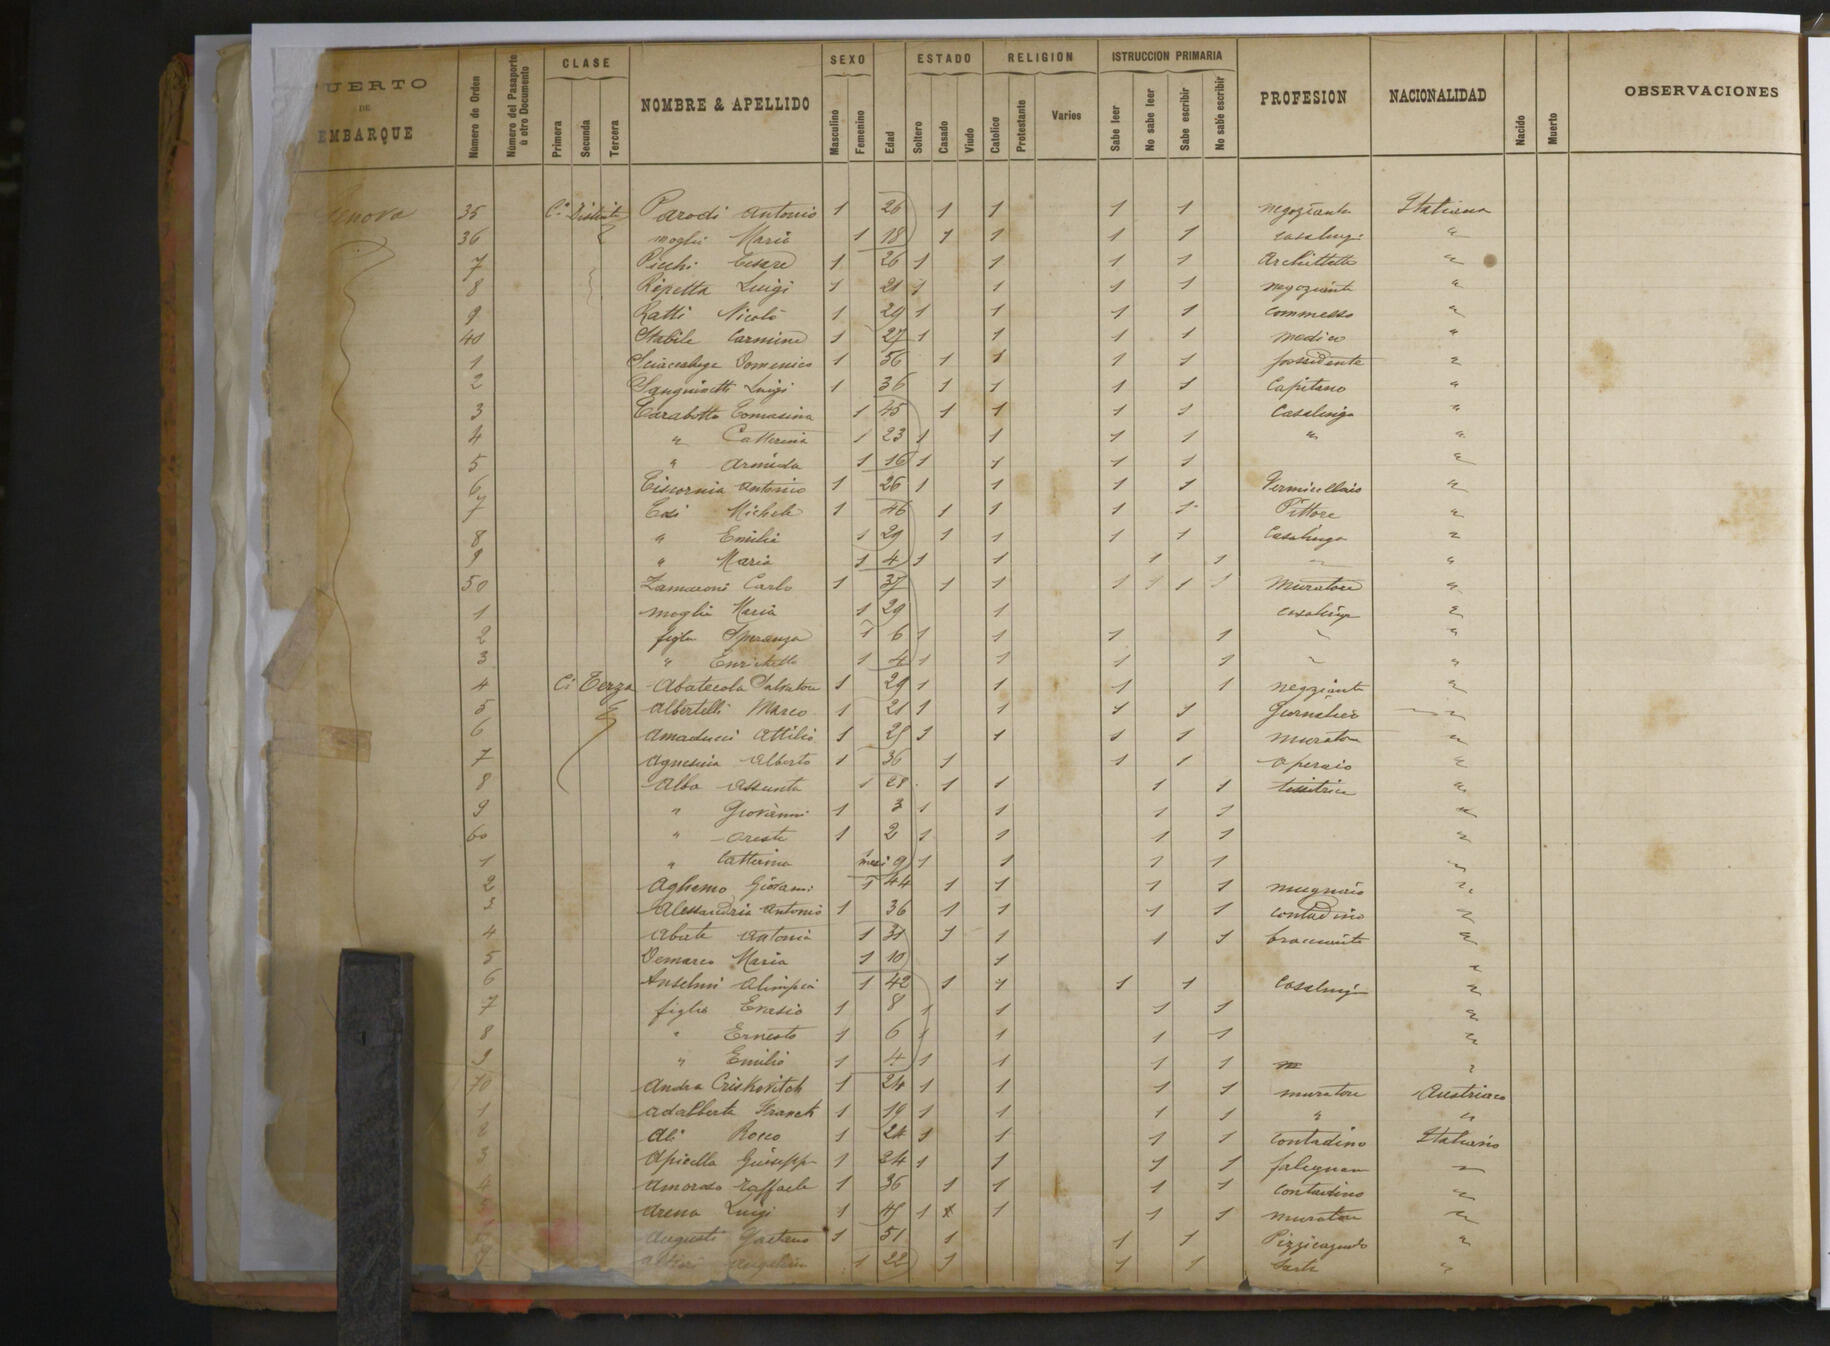 PUERTO DE EMBARQUE
Número de Orden
Número del Pasaporte ú otro Documento
CLASE
Primera Secunda Tercera
NOMBRE & APELLIDO
SEXO
Masculino Femenino
Edad
ESTADO
Soltero Casado Viudo
RELIGION
Catolico Protestante Varios
ISTRUCCION PRIMARIA
Sabe leer No sabe leer Sabe escribir No sabe escribir
PROFESION
NACIONALIDAD
Nacido
Muerto
OBSERVACIONES
Genova 35 Cl. Distinta Parodi Antonio 1 26 1 1 1 1 negoziante Italiana
36 moglie Maria 1 18 1 1 1 1 casalinga "
7 Picchi Cesare 1 26 1 1 1 1 Architetto "
8 Repetta Luigi 1 21 1 1 1 1 negoziante "
9 Ratti Nicolò 1 29 1 1 1 1 commesso "
40 Stabile Carmine 1 27 1 1 1 1 medico "
1 Domenico 1 56 1 1 1 1 possidente "
2 Sanguinetti Luigi 1 36 1 1 1 1 Capitano "
3 Tomasina 1 45 1 1 1 1 Casalinga "
4 " Catterina 1 23 1 1 1 1 " "
5 " Armida 1 16 1 1 1 1 "
6 Antonio 1 26 1 1 1 1 Vermicellaio "
7 Michele 1 46 1 1 1 1 Pittore "
8 " Emilia 1 29 1 1 1 1 Casalinga "
9 " Maria 1 4 1 1 1 1 "
50 Zamaroni Carlo 1 37 1 1 1 1 1 1 Muratore "
1 moglie Maria 1 29 1 casalinga "
2 figlia Speranza 1 6 1 1 1 1 " "
3 " Enrichetta 1 4 1 1 1 1 " "
4 Cl. Terza Abatecola Salvatore 1 29 1 1 1 1 negoziante "
5 Albertelli Marco 1 21 1 1 1 1 Giornaliero "
6 Amaducci Attilio 1 25 1 1 1 1 muratore "
7 Alberto 1 36 1 1 1 operaio "
8 Alba Assunta 1 28 1 1 1 1 tessitrice "
9 " Giovanni 1 3 1 1 1 1 "
60 " Oreste 1 2 1 1 1 1 "
1 " Catterina mesi 9 1 1 1 1 "
2 Aghemo Giovanni 1 44 1 1 1 1 mugnaio "
3 Alessandria Antonio 1 36 1 1 1 1 contadino "
4 Abate Antonia 1 31 1 1 1 1 bracciante "
5 Demarco Maria 1 10 1 "
6 Anselmi Olimpia 1 42 1 1 1 1 Casalinga "
7 figlio Erasio 1 8 1 1 1 1 "
8 " Ernesto 1 6 1 1 1 1 "
9 " Emilio 1 4 1 1 1 1 "
70 Andrea Criskovitch 1 24 1 1 1 1 muratore Austriaco
1 Adalberto 1 19 1 1 1 1 " "
2 Ali Rocco 1 24 1 1 1 1 Contadino Italiano
3 Apicella Giuseppe 1 24 1 1 1 1 falegname "
4 Amoroso Raffaele 1 36 1 1 1 1 Contadino "
Arena Luigi 1 1 1 1 1 1 muratore "
Augusti Gaetano 1 51 1 1 1 Pizzicagnolo "
1 22 1 1 1 Sarta "